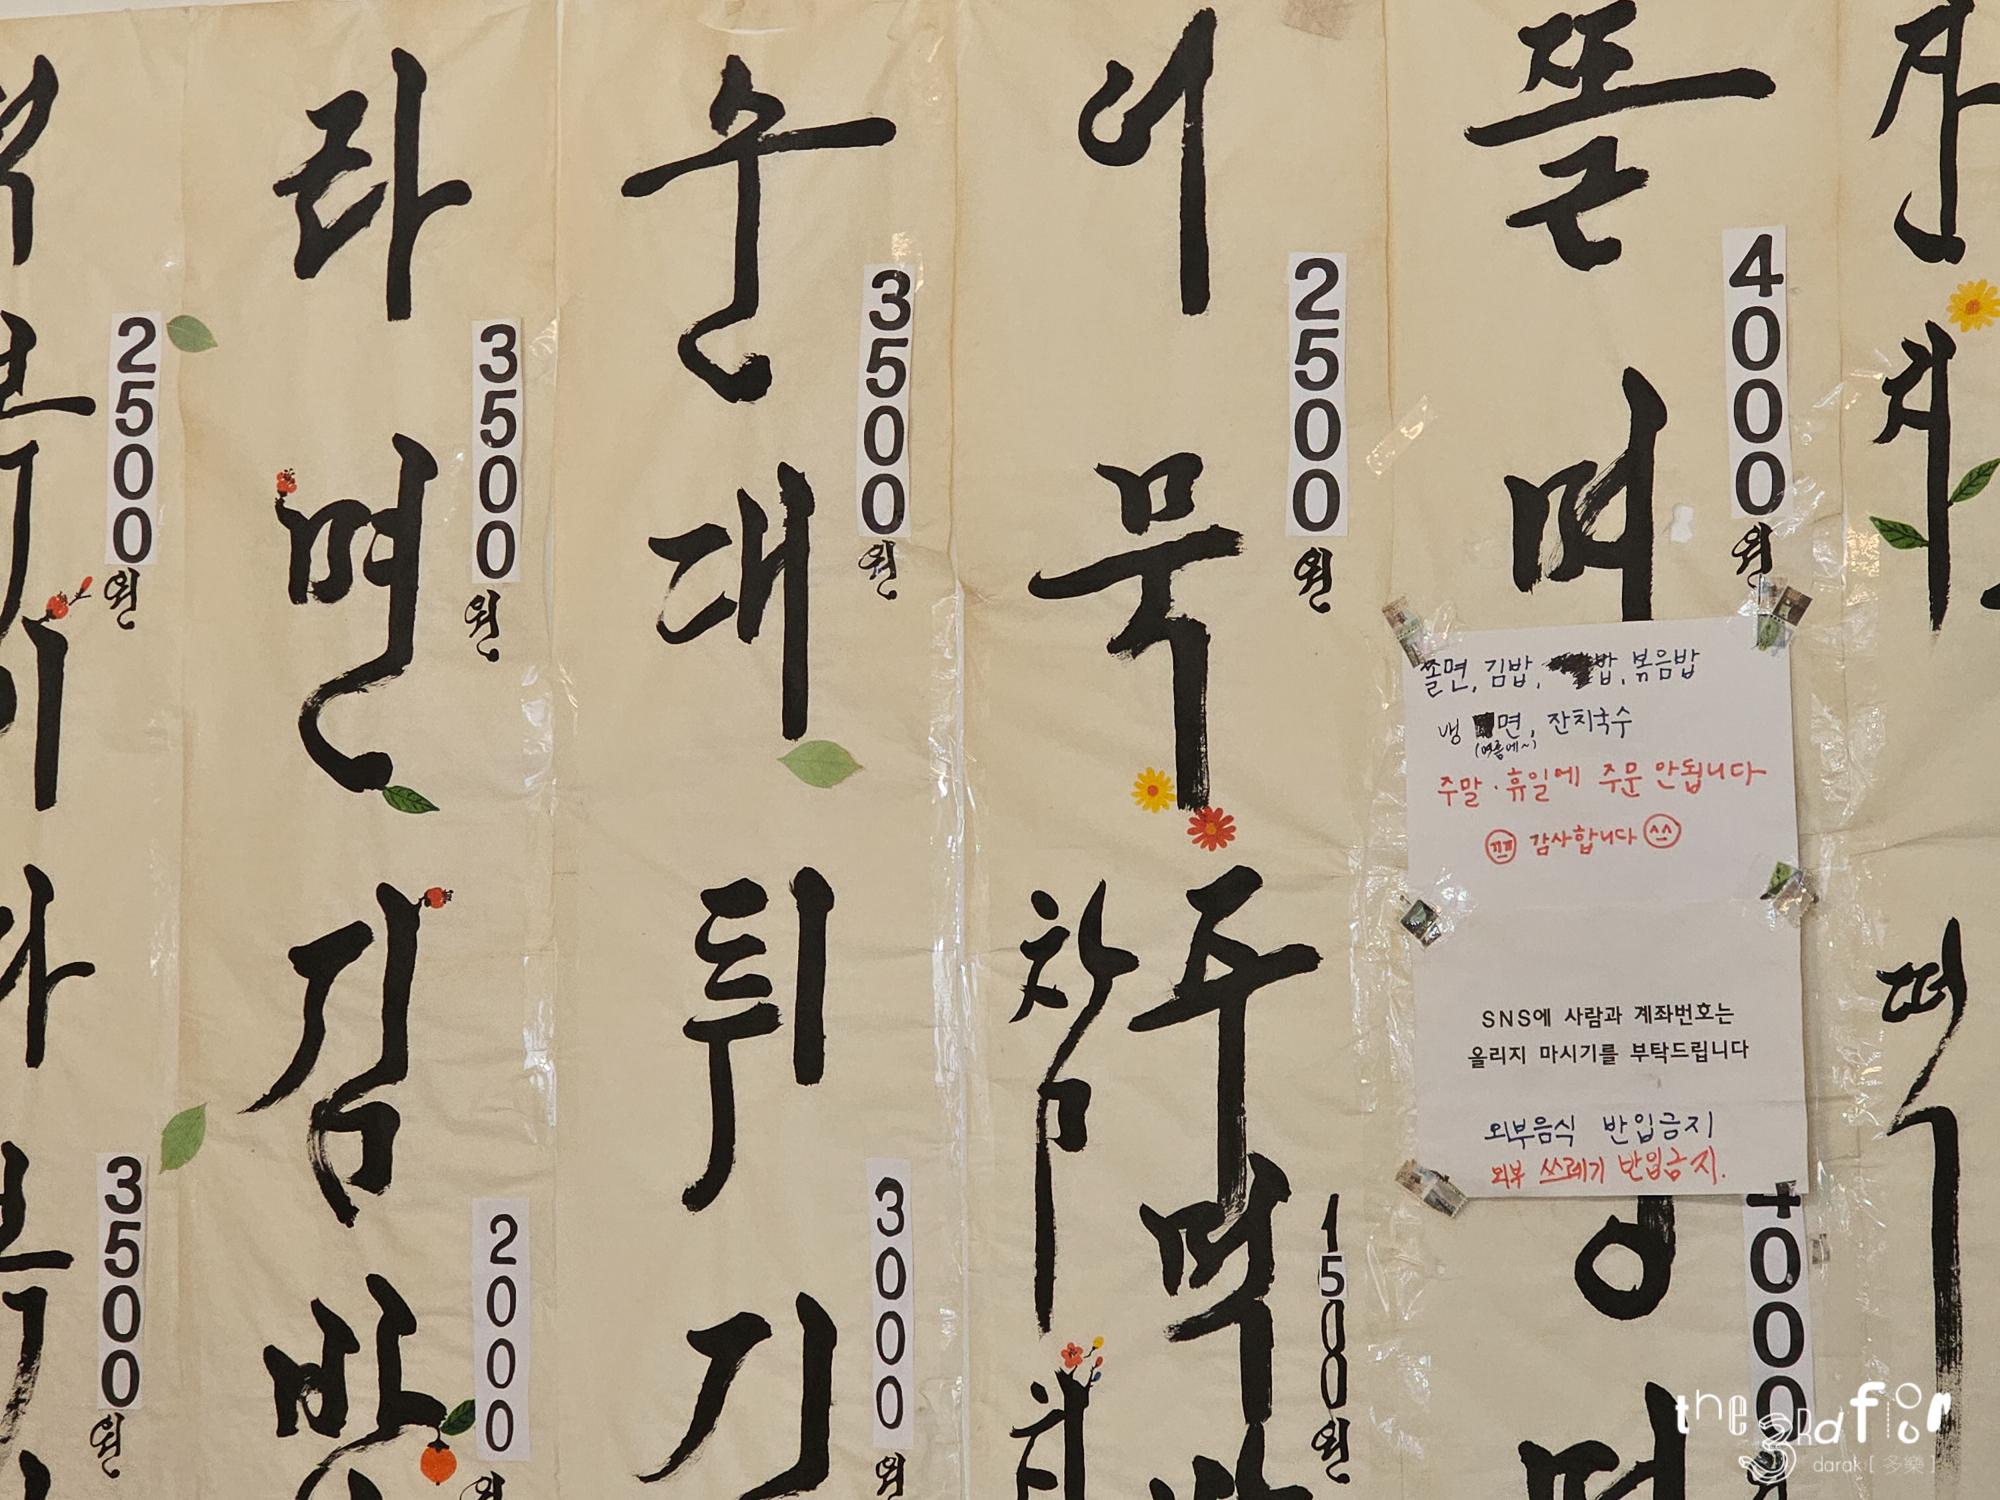 라면
3500원
김밥
2000원
순대
3500원
튀기
3000원
어묵
2500원
주먹밥
참치
1500원
쫄면
4000원
2500원
3500원
쫄면, 김밥, 밥, 볶음밥
냉 면, 잔치국수
(여름에~)
주말·휴일에 주문 안됩니다
감사합니다
SNS에 사람과 계좌번호는
올리지 마시기를 부탁드립니다
외부음식 반입금지
외부 쓰레기 반입금지.
4000
잔치
떡
the 3rd floor
darak [多樂]